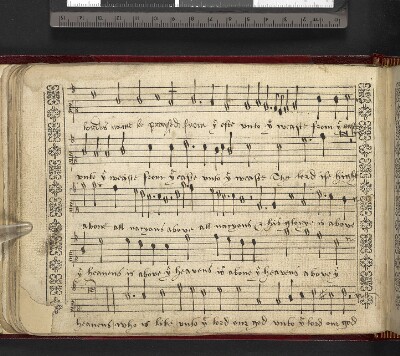 lordes name be praysed, from yͤ este unto yͤ weaste from yͤ
unto yͤ weaste from yͤ easte unto yͤ weaste The lord is highe
above all natyons above all natyons & his glorye is above
yͤ heavens is above yͤ heavens is above yͤ heavens above yͤ
heavens, who is like unto yͤ lord our god unto yͤ lord our god